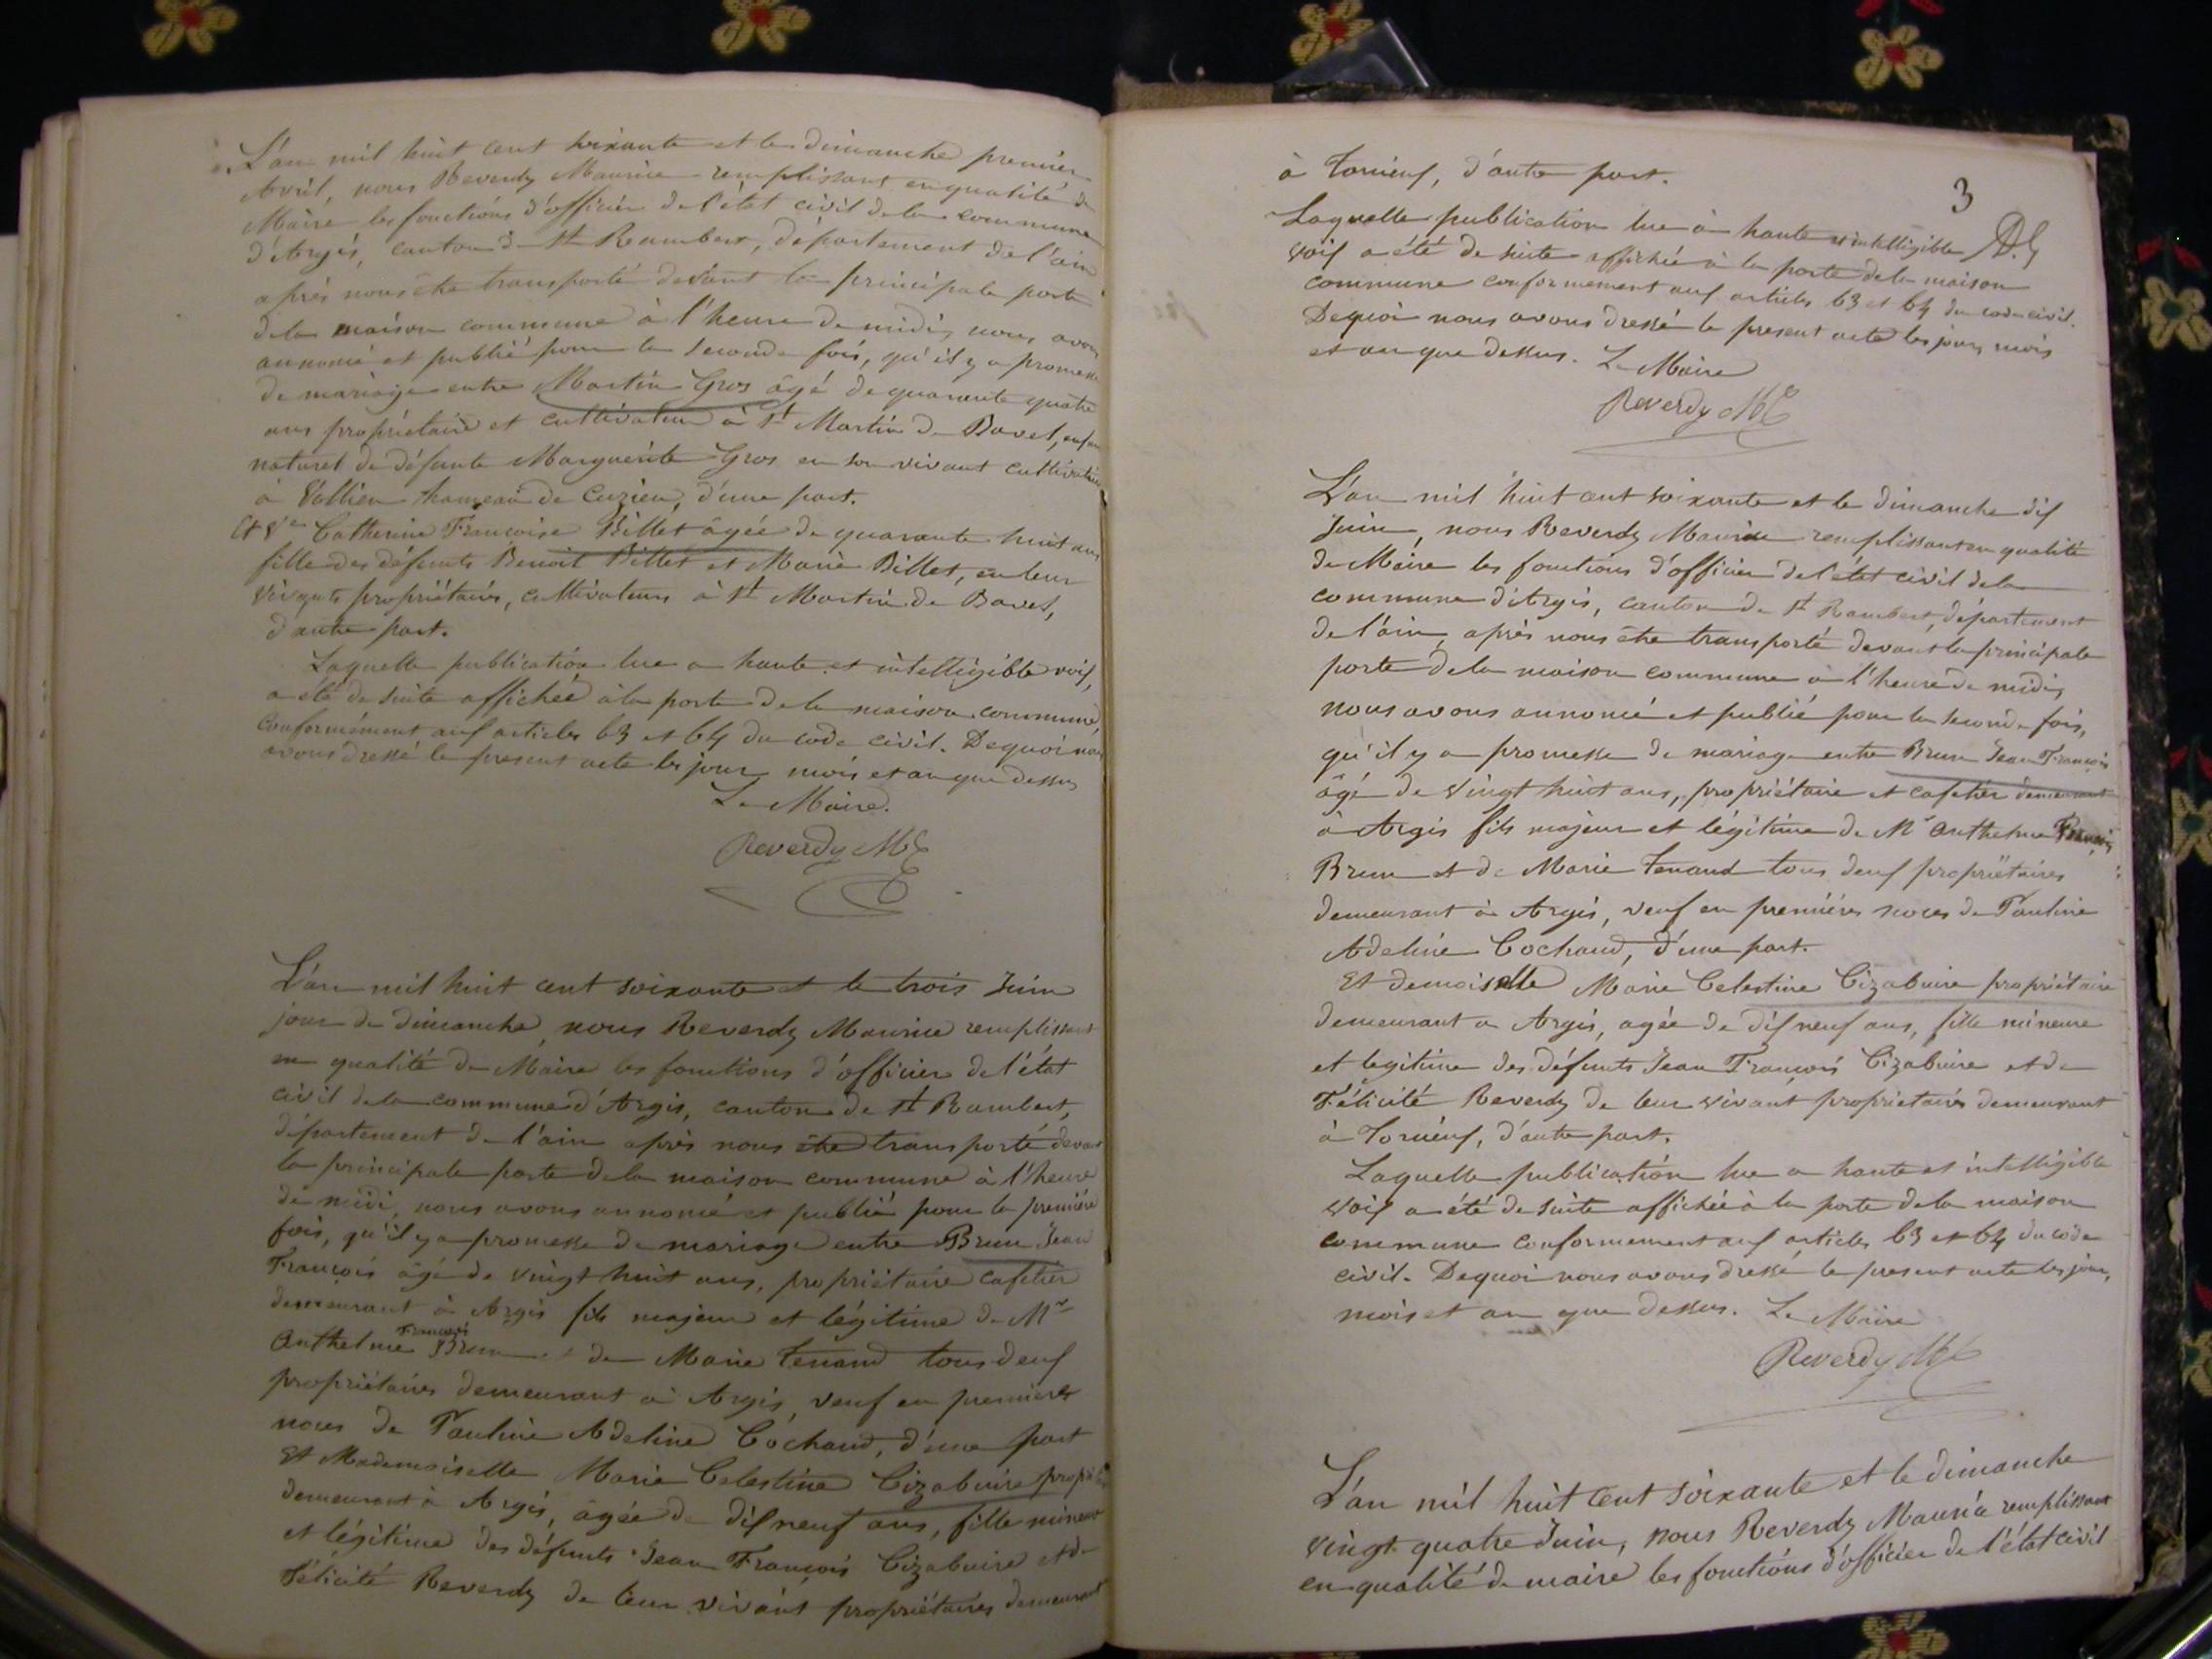 L'an mil huit cent soixante et le dimanche premier
Avril, nous Reverdy Maurice remplissant en qualité de
Maire les fonctions d'officier de l'état civil de la commune
d'Argis, canton de St Rambert, département de l'ain
après nous être transporté devant la principale porte
de la maison commune à l'heure de midi, nous avons
annoncé et publié pour la seconde fois, qu'il y a promesse
de mariage entre Martin Gros âgé de quarante quatre
ans propriétaire et cultivateur à St Martin de Bavel, enfant
naturel de défunte Marguerite Gros en son vivant cultivatrice
à Vollien hameau de Cuzieu, d'une part.
Et Catherine Françoise Billet âgée de quarante huit ans
fille des défunts Benoit Billet et Marie Billet, en leur
vivants propriétaires, cultivateurs à St Martin de Bavel,
d'autre part.
Laquelle publication lue a haute et intelligible voix,
a été de suite affichée à la porte de la maison commune,
conformément aux articles 63 et 64 du code civil. De quoi nous
avons dressé le present acte les jour, mois et an que dessus
Le Maire.
Reverdy
L'an mil huit cent soixante et le trois Juin
jour de dimanche, nous Reverdy Maurice remplissant
en qualité de Maire les fonctions d'officier de l'état
civil de la commune d'Argis, canton de St Rambert,
département de l'ain après nous être transporté devant
la principale porte de la maison commune à l'heure
de midi, nous avons annoncé et publié pour la première
fois, qu'il y a promesse de mariage entre Brun Jean
François âgé de vingt huit ans, propriétaire cafetier
demeurant à Argis fils majeur et légitime de Mr
Anthelme François Brun et de Marie Tenand tous deux
propriétaires demeurant à Argis, veuf en premières
noces de Pauline Adeline Cochand, d'une part
Et Mademoiselle Marie Celestine Cizabuire propriétaire
demeurant à Argis, âgée de dix neuf ans, fille mineure
et légitime des défunts Jean François Cizabuire et de
Félicité Reverdy de leur vivant propriétaires demeurant
3
à Torcieux, d'autre part.
Laquelle publication lue à haute et intelligible
voix a été de suite affichée à la porte de la maison
commune conformement aux articles 63 et 64 du code civil.
De quoi nous avons dressé le present acte les jour, mois
et an que dessus. Le Maire
Reverdy
L'an mil huit cent soixante et le dimanche dix
Juin, nous Reverdy Maurice remplissant en qualité
de Maire les fonctions d'officier de l'état civil de la
commune d'Argis, canton de St Rambert, département
de l'ain, après nous être transporté devant la principale
porte de la maison commune à l'heure de midi,
nous avons annoncé et publié pour la seconde fois,
qu'il y a promesse de mariage entre Brun Jean François
âgé de vingt huit ans, propriétaire et cafetier demeurant
à Argis fils majeur et légitime de Mr Anthelme François
Brun et de Marie Tenand tous deux propriétaires
demeurant à Argis, veuf en premières noces de Pauline
Adeline Cochand, d'une part.
Et demoiselle Marie Celestine Cizabuire propriétaire
demeurant a Argis, agée de dix neuf ans, fille mineure
et legitime des défunts Jean François Cizabuire et de
Félicité Reverdy de leur vivant propriétaires demeurant
à Torcieux, d'autre part.
Laquelle publication lue a haute et intelligible
voix a été de suite affichée à la porte de la maison
commune conformement aux articles 63 et 64 du code
civil. De quoi nous avons dressé le present acte les jour,
mois et an que dessus. Le Maire
Reverdy
L'an mil huit cent soixante et le dimanche
vingt quatre Juin, nous Reverdy Maurice remplissant
en qualité de maire les fonctions d'officier de l'état civil